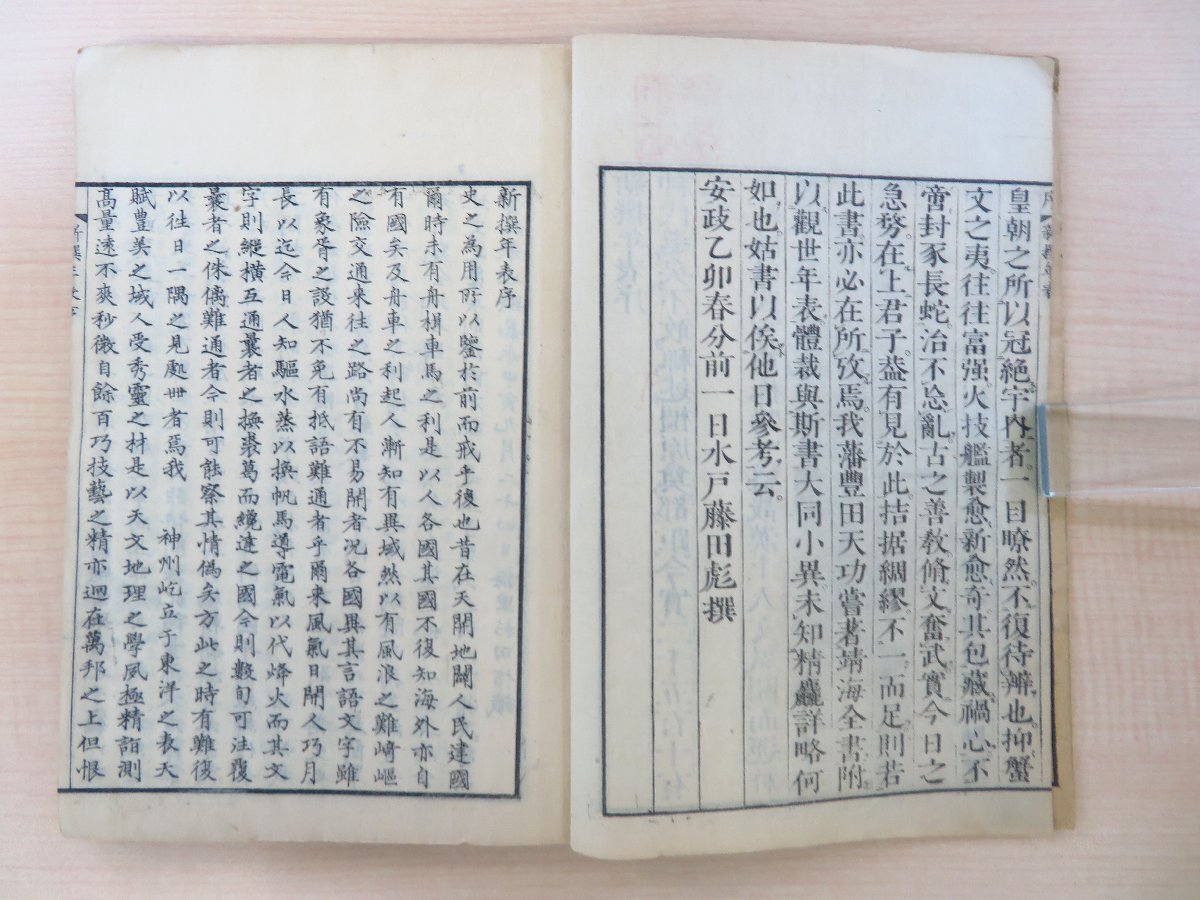 皇朝之所以冠絶宇內者。一目瞭然。不復待辨也。抑蟹
文之夷。往往富强。火技艦製。愈新愈奇。其包藏禍心。不
啻封豕長蛇。治不忘亂。古之善教。脩文奮武。實今日之
急務。在上君子。葢有見於此。拮据綢繆。不一而足。則若
此書亦必在所攷焉。我藩豊田天功。嘗著靖海全書。附
以觀世年表。體裁與斯書大同小異。未知精麤詳略何
如也。姑書以俟他日參考云。
安政乙卯春分前一日水戸藤田彪撰
新撰年表序
史之為用所以鑒於前而戒乎後也昔在天開地闢人民建國
爾時未有舟楫車馬之利是以人各國其國不復知海外亦自
有國矣及舟車之利起人漸知有異域然以有風浪之難崎嶇
之險交通来往之路尚有不易開者况各國異其言語文字雖
有象胥之設猶不免有抵語難通者乎爾来風氣日開人巧月
長以迄今日人知驅水蒸以換帆馬導電氣以代烽火而其文
字則縱横互通曩者之撫裘葛而纔達之國今則數旬可注復
曩者之侏儷難通者今則可能察其情偽矣方此之時有難復
以往日一隅之見處世者焉我 神州屹立于東洋之表天
賦豊美之域人受秀靈之材是以天文地理之學夙極精詣測
高量遠不爽秒微自餘百巧技藝之精亦迥在萬邦之上但恨